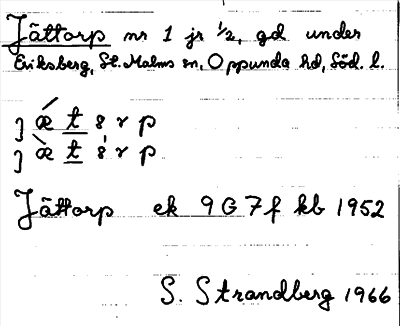 Jättorp nr 1 jr ½, gd under
Eriksberg, St. Malms sn, Oppunda hd, Söd. l.
Jättorp ek 9G7f kb 1952
S. Strandberg 1966